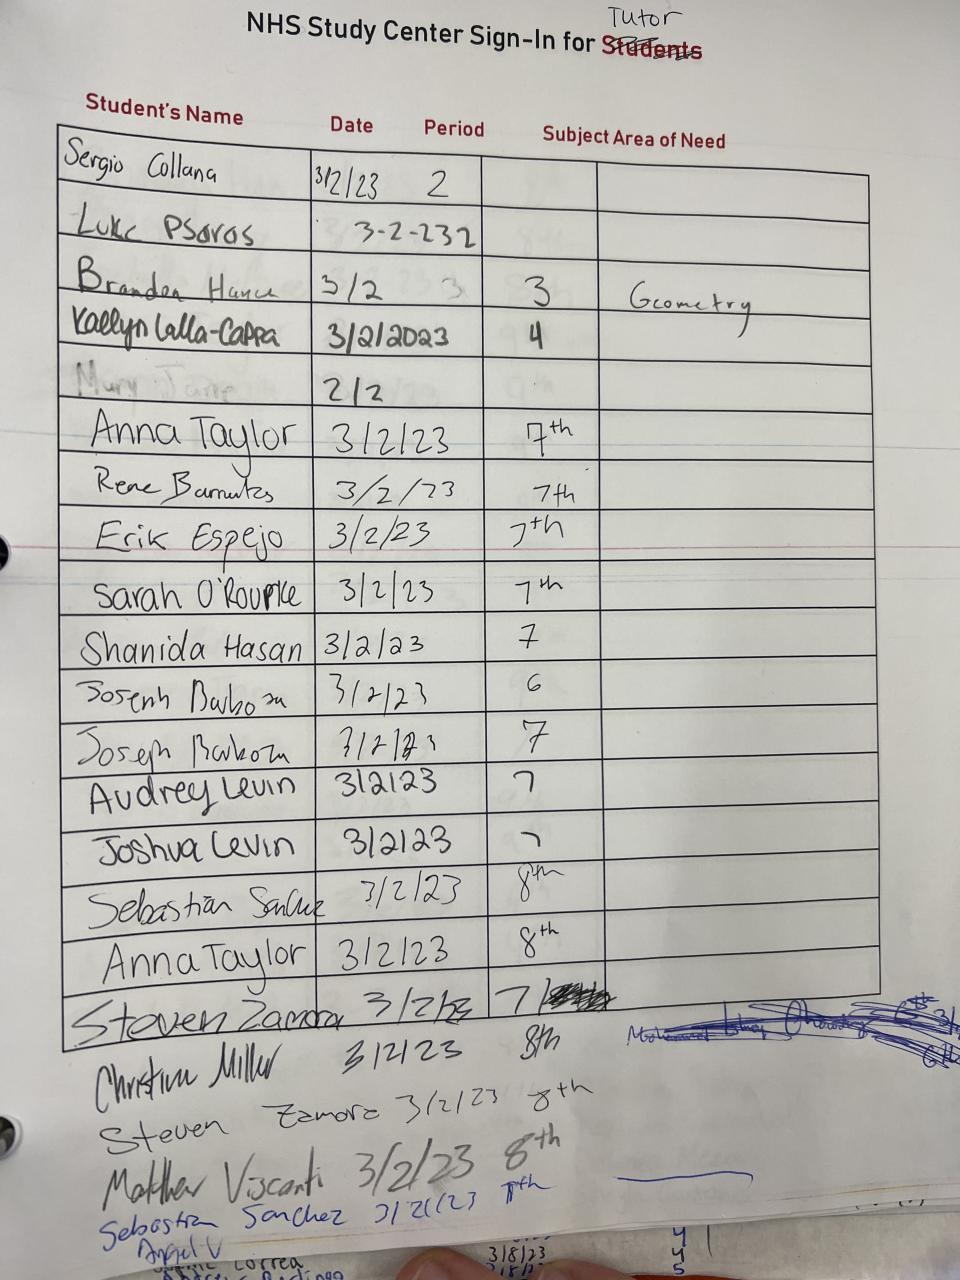 Tutor
NHS Study Center Sign-In for Students
Student's Name Date Period Subject Area of Need
Sergio Collana 3/2/23 2
Luke Psaros 3-2-23 2
Branden 3/2 3 3 Geometry
Kaelyn Lalla-Cappa 3/2/2023 4
Mary Jane 2/2
Anna Taylor 3/2/23 7th
Rene 3/2/23 7th
Erik Espejo 3/2/23 7th
Sarah O'Rourke 3/2/23 7th
Shanida Hasan 3/2/23 7
Joseph Barbosa 3/2/23 6
Joseph 3/2/23 7
Audrey Levin 3/2/23 7
Joshua Levin 3/2/23 7
Sebastian Sanchez 3/2/23 8th
Anna Taylor 3/2/23 8th
Steven Zamora 3/2/23 7/
Christine Miller 3/2/23 8th
Steven Zamora 3/2/23 8th
Matthew Visconti 3/2/23 8th
Sebastian Sanchez 3/2/23
Angel V
Correa 3/8/23 4
5